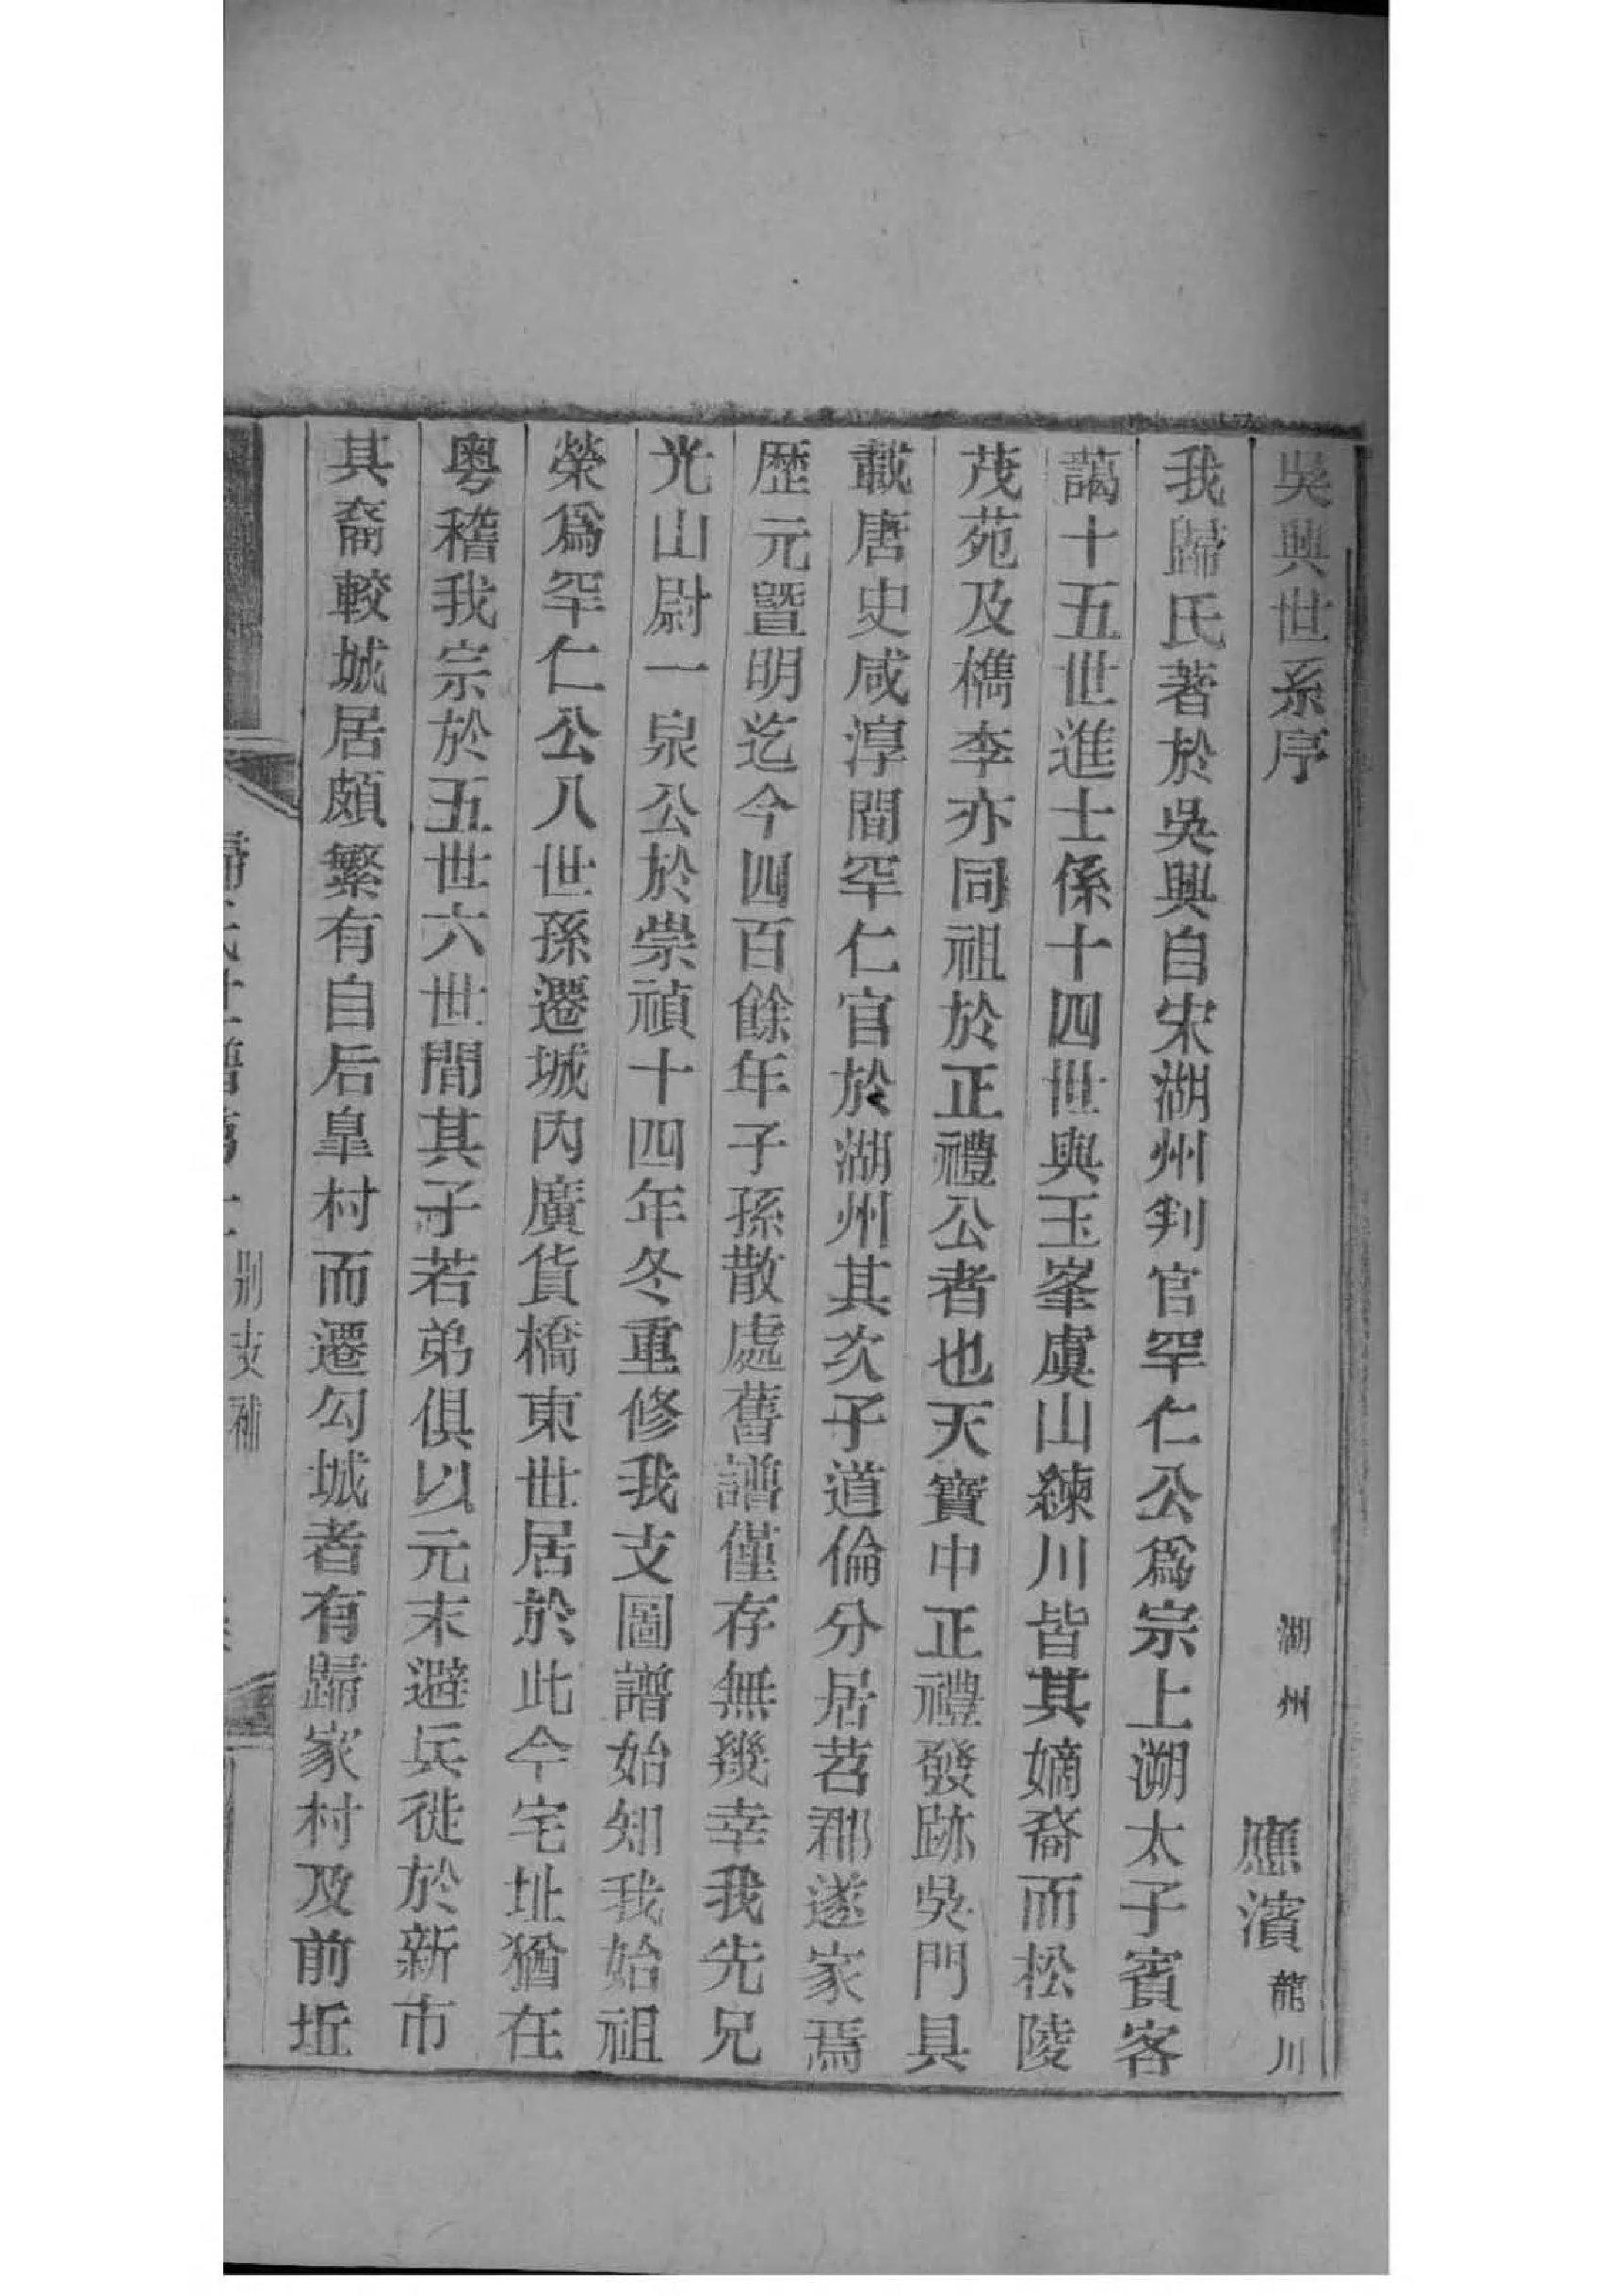 吳興世系序
湖州 應濱龍川
我歸氏著於吳興自宋湖州判官罕仁公爲宗上溯太子賓客
藹十五世進士係十四世與玉峯虞山練川皆其嫡裔而松陵
茂苑及檇李亦同祖於正禮公者也天寶中正禮發跡吳門具
載唐史咸淳間罕仁官於湖州其次子道倫分居苕郡遂家焉
歷元暨明迄今四百餘年子孫散處舊譜僅存無幾幸我先兄
光山尉一泉公於崇禎十四年冬重修我支圖譜始知我始祖
榮爲罕仁公八世孫遷城內廣貨橋東世居於此今宅址猶在
粤稽我宗於五世六世間其子若弟俱以元末避兵徙於新市
其裔較城居頗繁有自后皇村而遷勾城者有歸家村及前坵
歸氏世譜
別支補